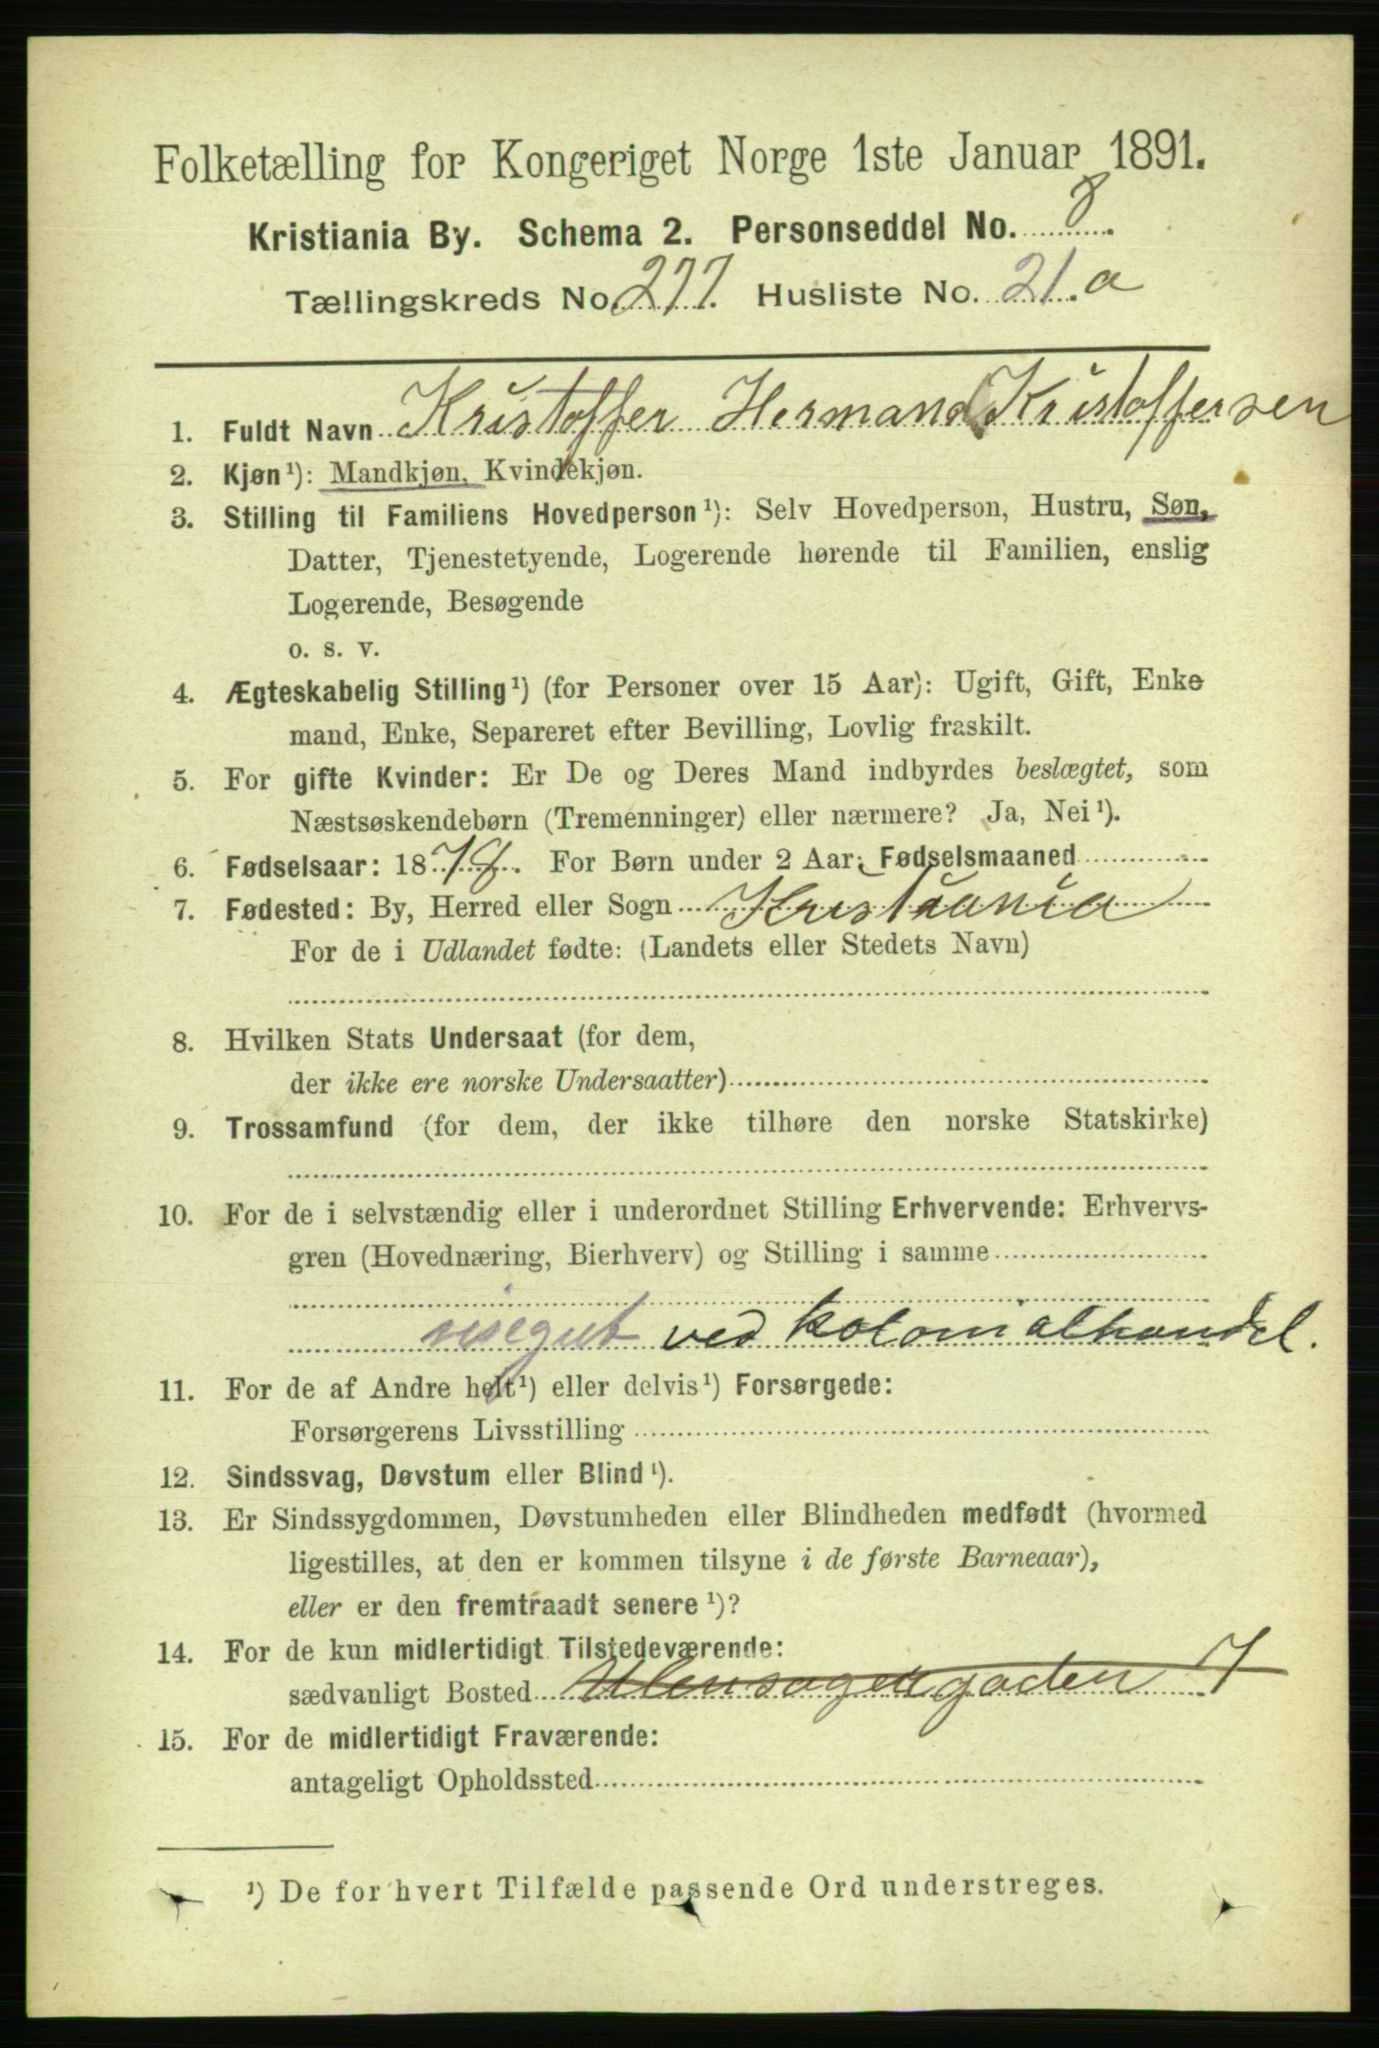 Folketælling for Kongeriget Norge 1ste Januar 1891.
Kristiania By. Schema 2. Personseddel No. 8
Tællingskreds No. 277. Husliste No. 21.a
1. Fuldt Navn Kristoffer Hermand Kristoffersen
2. Kjøn¹): Mandkjøn, Kvindekjøn.
3. Stilling til Familiens Hovedperson¹): Selv Hovedperson, Hustru, Søn,
Datter, Tjenestetyende, Logerende hørende til Familien, enslig
Logerende, Besøgende
o. s. v.
4. Ægteskabelig Stilling¹) (for Personer over 15 Aar): Ugift, Gift, Enke
mand, Enke, Separeret efter Bevilling, Lovlig fraskilt.
5. For gifte Kvinder: Er De og Deres Mand indbyrdes beslægtet, som
Næstsøskendebørn (Tremenninger) eller nærmere? Ja, Nei¹).
6. Fødselsaar: 1878. For Børn under 2 Aar: Fødselsmaaned
7. Fødested: By, Herred eller Sogn Kristiania
For de i Udlandet fødte: (Landets eller Stedets Navn)
8. Hvilken Stats Undersaat (for dem,
der ikke ere norske Undersaatter)
9. Trossamfund (for dem, der ikke tilhøre den norske Statskirke)
10. For de i selvstændig eller i underordnet Stilling Erhvervende: Erhvervs-
gren (Hovednæring, Bierhverv) og Stilling i samme
visegut ved kolonialhandel.
11. For de af Andre helt¹) eller delvis¹) Forsørgede:
Forsørgerens Livsstilling
12. Sindssvag, Døvstum eller Blind¹).
13. Er Sindssygdommen, Døvstumheden eller Blindheden medfødt (hvormed
ligestilles, at den er kommen tilsyne i de første Barneaar),
eller er den fremtraadt senere¹)?
14. For de kun midlertidigt Tilstedeværende:
sædvanligt Bosted 7
15. For de midlertidigt Fraværende:
antageligt Opholdssted
¹) De for hvert Tilfælde passende Ord understreges.